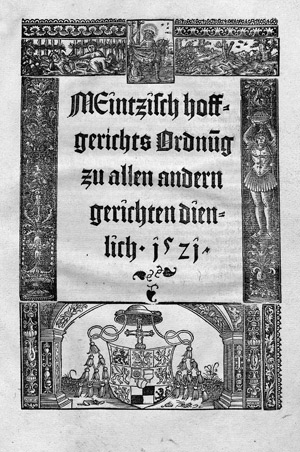 MEintzisch hoff-
gerichts Ordnūg
zu allen andern
gerichten dien-
lich · 1521 ·